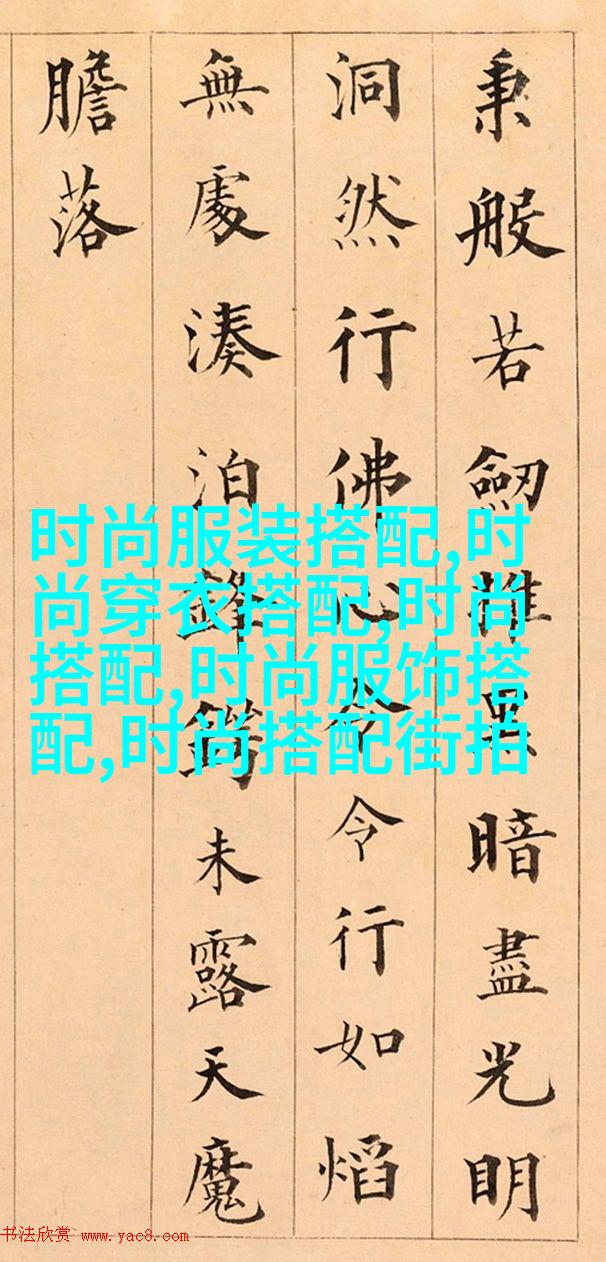 秉般若劒暗盡光明
洞然行佛心令令行如熖
無處湊泊鋒鍔未露天魔
膽落
时尚服装搭配,时
尚穿衣搭配,时尚
搭配,时尚服饰搭
配,时尚搭配街拍
书法欣赏 www.yac8.com